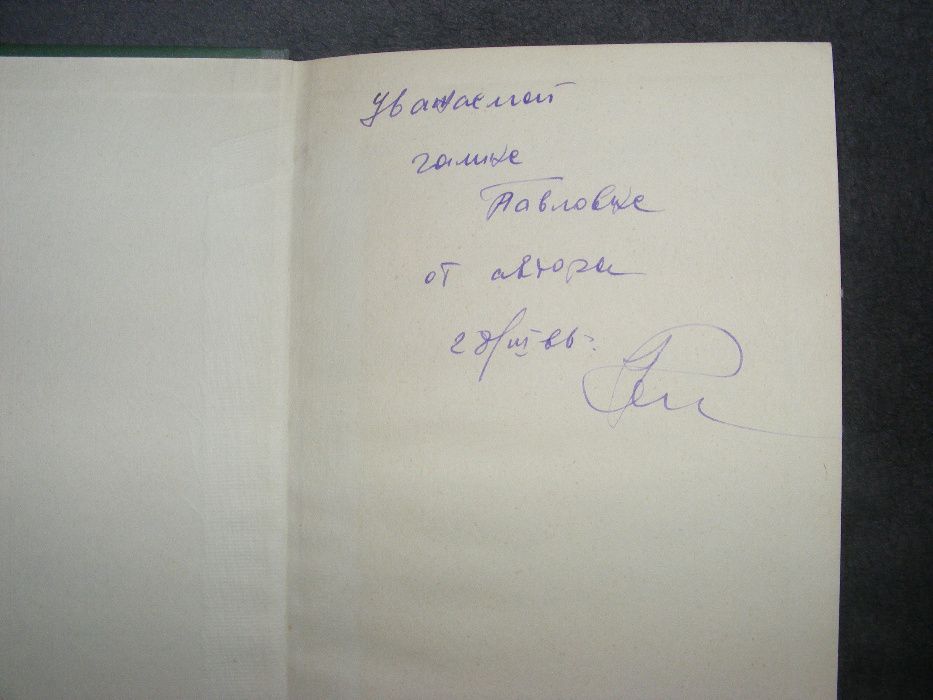 Уважаемой
Галине
Павловне
от автора